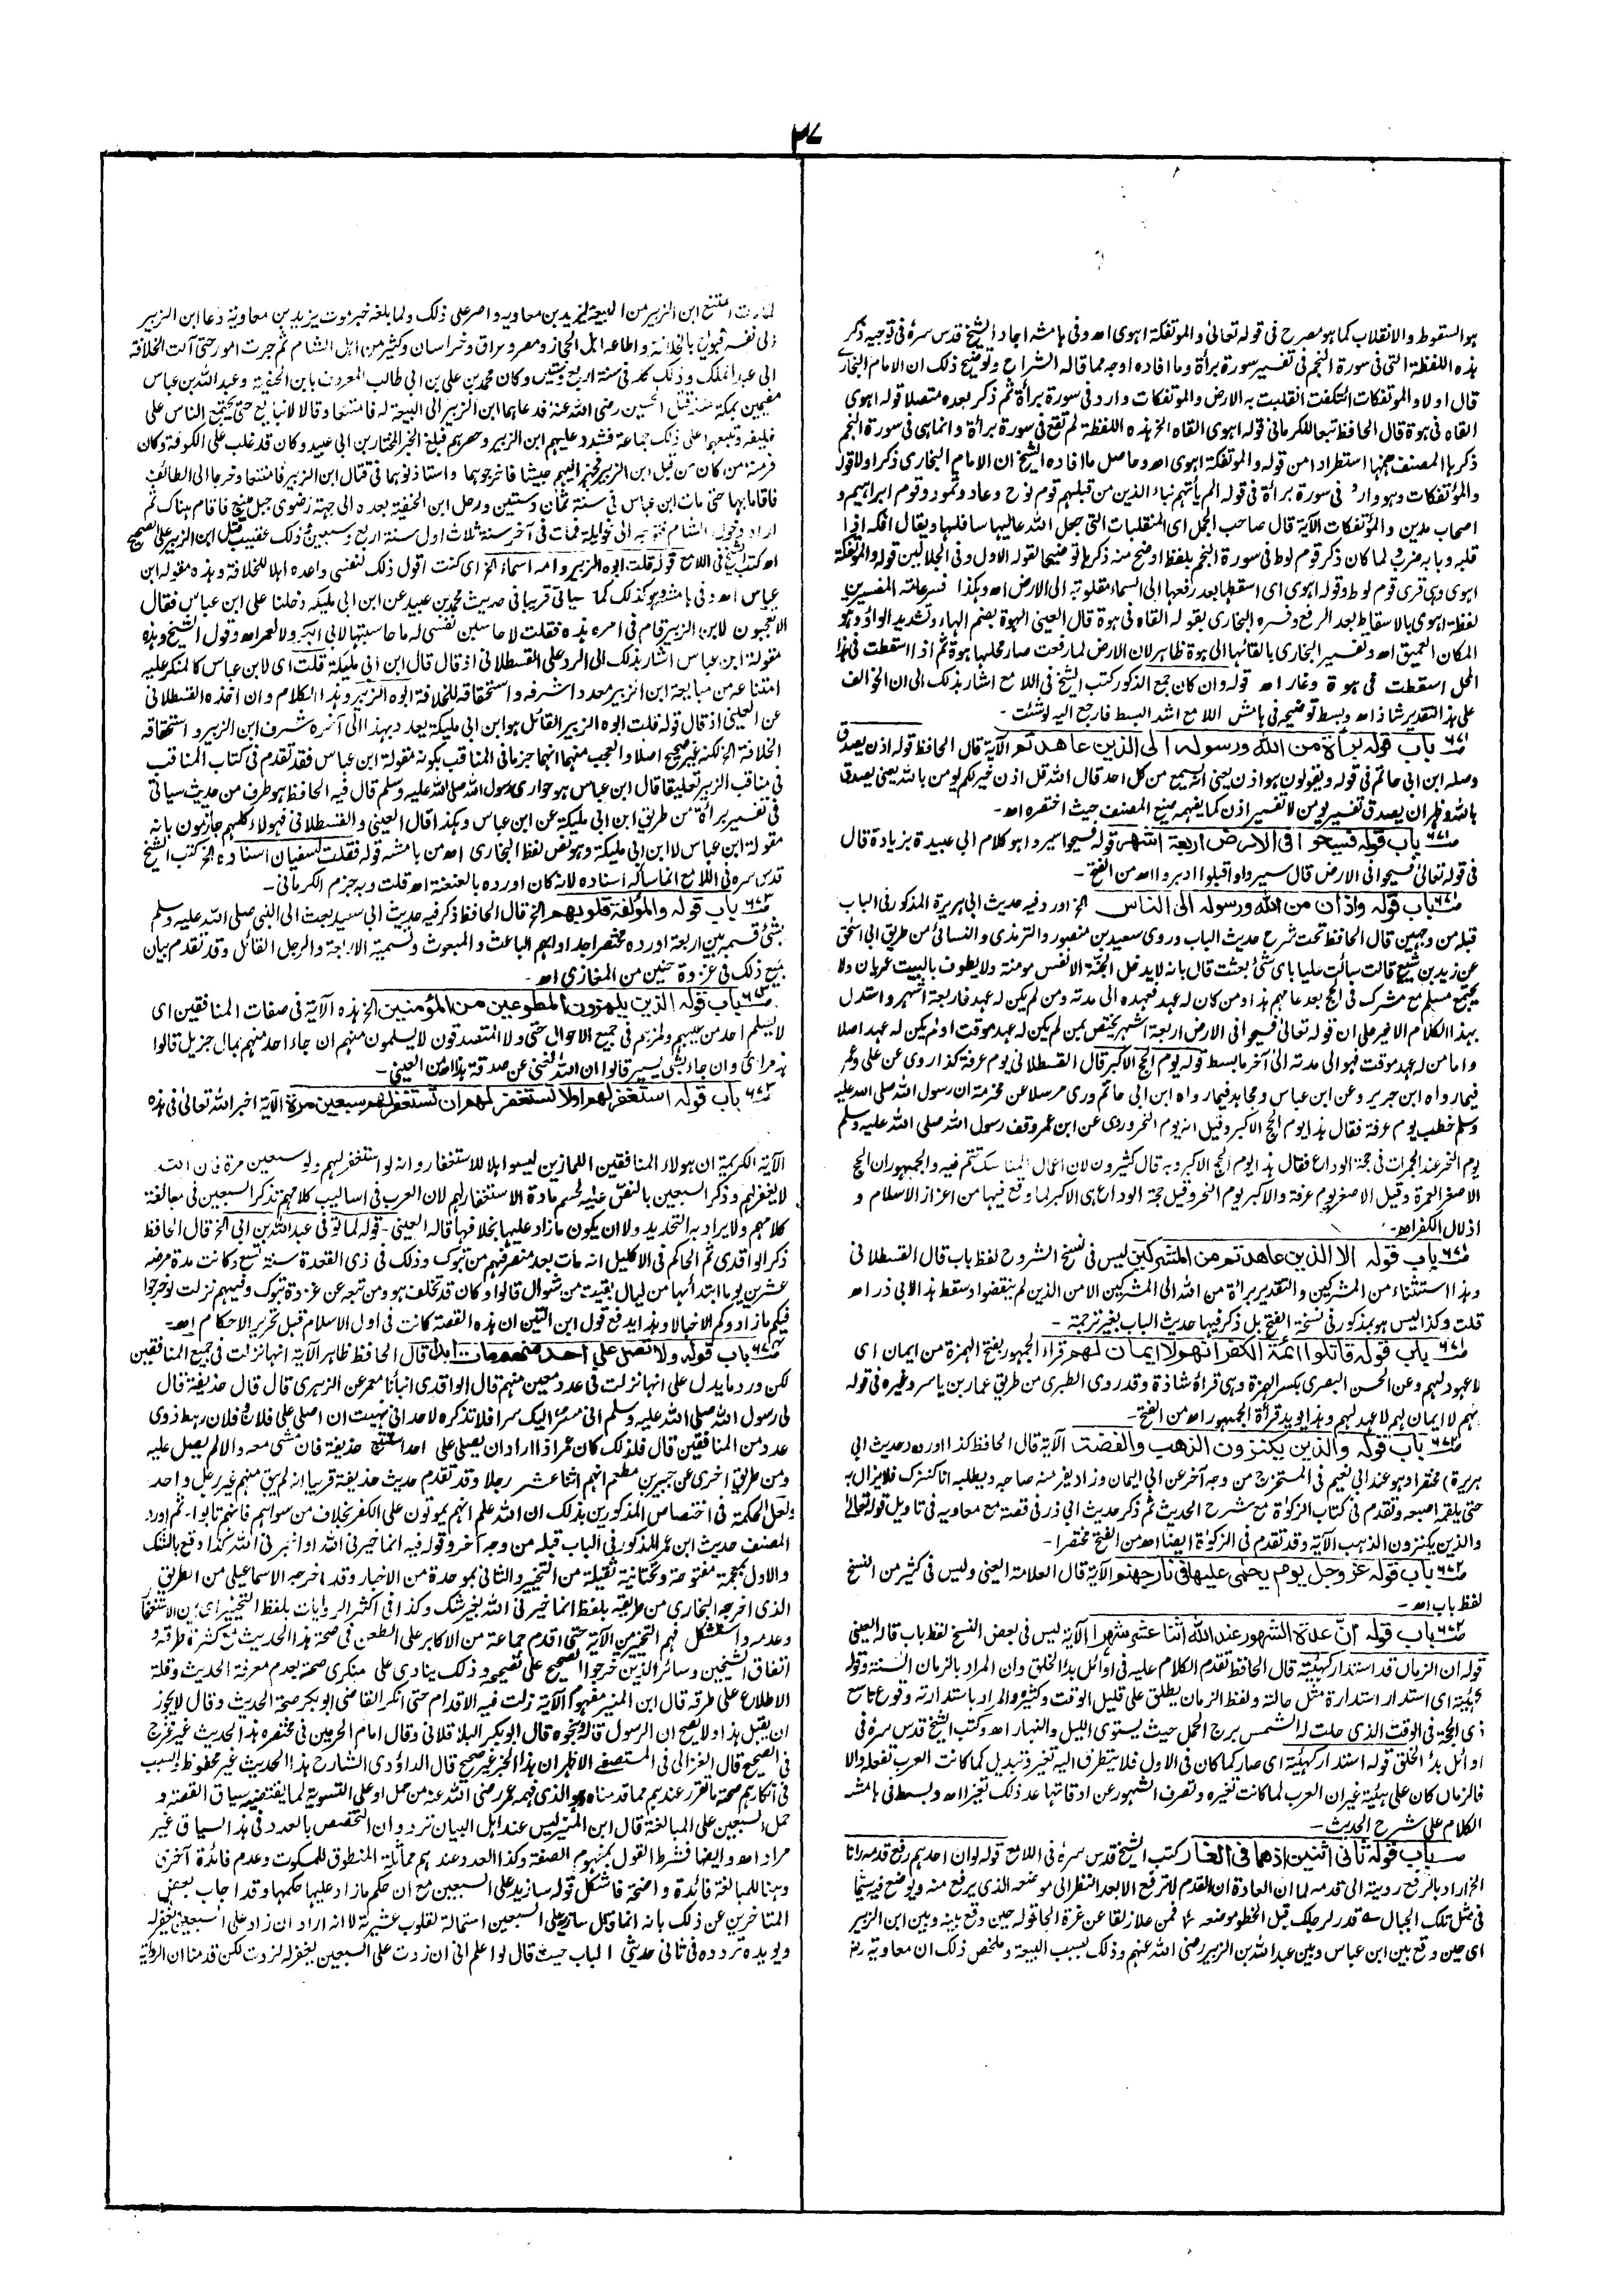 ٣٧
هو السقوط والانقلاب كما هو مصرح فى قوله تعالى والموتفكة اهوى اھ وفى هامشه اجاد الشيخ قدس سره فى توجيه ذكر
هذه اللفظة التى فى سورة النجم فى تفسير سورة برأة وما افاده اوجه مما قاله الشراح وتوضيح ذلك ان الامام البخارى
قال اولا والموتفكات ائتكفت انقلبت به الارض والموتفكات وارد فى سورة برأة ثم ذكر بعده متصلا قوله اهوى
القاه فى هوة قال الحافظ تبعا للكرمانى قوله اهوى القاه الخ هذه اللفظة لم تقع فى سورة برأة وانما هى فى سورة النجم
ذكرها المصنف ههنا استطرادا من قوله والموتفكة اهوى اھ وحاصل ما افاده الشيخ ان الامام البخارى ذكر اولا قوله
والمؤتفكات وهو وارد فى سورة برأة فى قوله الم يأتهم نباء الذين من قبلهم قوم نوح وعاد وثمود وقوم ابراهيم و
اصحاب مدين والمؤتفكات الآية قال صاحب الجمل اى المنقلبات التى جعل الله عاليها سافلها ويقال افكه اذا
قلبه وبابه ضرب ولما كان ذكر قوم لوط فى سورة النجم بلفظ اوضح منه ذكرها توضيحا لقوله الاول وفى الجلالين قوله والموتفكة
اهوى وهى قرى قوم لوط وقوله اهوى اى اسقطها بعد رفعها الى السماء مقلوبة الى الارض اھ وهكذا فسر عامة المفسرين
لفظة اهوى بالاسقاط بعد الرفع وفسره البخارى بقوله القاه فى هوة قال العينى الهوة بضم الهاء وتشديد الواو وهو
المكان العميق اھ وتفسير البخارى بالقائها الى هوة ظاهر لان الارض لما رفعت صار محلها هوة ثم اذا اسقطت فى هذا
المحل اسقطت فى هوة وغار اھ قوله وان كان جمع الذكور كتب الشيخ فى اللامع اشار بذلك الى ان الخوالف
على هذا التقدير شاذ اھ وبسط توضيحه فى هامش اللامع اشد البسط فارجع اليه لوشئت -
٦٧١ باب قوله برأة من الله ورسوله الى الذين عاهدتم الآية قال الحافظ قوله اذن يصدق
وصله ابن ابى حاتم فى قوله ويقولون هو اذن يعنى انه يسمع من كل احد قال الله قل اذن خير لكم يومن بالله يعنى يصدق
بالله وظهر ان يصدق تفسير يومن لا تفسير اذن كما يفهمه صنيع المصنف حيث اختصره اھ -
٦٧١ باب قوله فسيحوا فى الارض اربعة اشهر قوله سيحوا سيروا هو كلام ابى عبيدة بزيادة قال
فى قوله تعالى فسيحوا فى الارض قال سيروا واقبلوا وادبروا اھ من الفتح -
٦٧١ باب قوله واذان من الله ورسوله الى الناس الخ اورد فيه حديث ابى هريرة المذكور فى الباب
قبله من وجهين قال الحافظ تحت شرح حديث الباب وروى سعيد بن منصور والترمذى والنسائى من طريق ابى اسحق
عن زيد بن يثيع قالت سألت عليا باى شئ بعثت قال بانه لا يدخل الجنة الا نفس مومنة ولا يطوف بالبيت عريان ولا
يجتمع مسلم مع مشرك فى الحج بعد عامهم هذا ومن كان له عهد فعهده الى مدته ومن لم يكن له عهد فاربعة اشهر واستدل
بهذا الكلام الاخير على ان قوله تعالى فسيحوا فى الارض اربعة اشهر يختص بمن لم يكن له عهد موقت او لم يكن له عهد اصلا
واما من له عهد موقت فهو الى مدته الى آخر ما بسط قوله يوم الحج الاكبر قال القسطلانى يوم عرفة كذا روى عن على وعمر
فيما رواه ابن جرير وعن ابن عباس ومجاهد فيما رواه ابن ابى حاتم وروى مرسلا عن مخرمة ان رسول الله صلى الله عليه
وسلم خطب يوم عرفة فقال هذا يوم الحج الاكبر وقيل انه يوم النحر وروى عن ابن عمر وقف رسول الله صلى الله عليه وسلم
يوم النحر عند الجمرات فى حجة الوداع فقال هذا يوم الحج الاكبر وبه قال كثيرون لان اعمال المناسك تتم فيه والجمهور ان الحج
الاصغر العمرة وقيل الاصغر يوم عرفة والاكبر يوم النحر وقيل حجة الوداع هى الاكبر لما وقع فيها من اعزاز الاسلام و
اذلال الكفر اھ -
٦٧١ باب قوله الا الذين عاهدتم من المشركين ليس فى نسخ الشروح لفظ باب قال القسطلانى
وهذا استثناء من المشركين والتقدير برأة من الله الى المشركين الا من الذين لم ينقضوا وسقط هذا لابى ذر اھ
قلت وكذا ليس هو بمذكور فى نسخة الفتح بل ذكر فيها حديث الباب بغير ترجمة -
٦٧١ باب قوله قاتلوا ائمة الكفر انهم لا ايمان لهم قراء الجمهور بفتح الهمزة من ايمان اى
لا عهود لهم وعن الحسن البصرى بكسر الهمزة وهى قراءة شاذة وقد روى الطبرى من طريق عمار بن ياسر وغيره فى قوله
انهم لا ايمان لهم لا عهد لهم وهذا يويد قرأة الجمهور اھ من الفتح -
٦٧٢ باب قوله والذين يكنزون الذهب والفضة الآية قال الحافظ كذا اورده (حديث ابى
هريرة) مختصرا وهو عند ابى نعيم فى المستخرج من وجه آخر عن ابى اليمان وزاد يفر منه صاحبه ويطلبه انا كنزك فلا يزال به
حتى يلقمه اصبعه وتقدم فى كتاب الزكوة مع شرح الحديث ثم ذكر حديث ابى ذر فى قصة مع معاويه فى تاويل قوله تعالى
والذين يكنزون الذهب الآية وقد تقدم فى الزكوة ايضا اھ من الفتح مختصرا -
٦٧٢ باب قوله عز وجل يوم يحمى عليها فى نار جهنم الآية قال العلامة العينى وليس فى كثير من النسخ
لفظ باب اھ -
٦٧٢ باب قوله ان عدة الشهور عند الله اثنا عشر شهرا الآية ليس فى بعض النسخ لفظ باب قاله العينى
قوله ان الزمان قد استدار كهيئته قال الحافظ تقدم الكلام عليه فى اوائل بدأ الخلق وان المراد بالزمان السنة وقوله
كهيئته اى استدار استدارة مثل حالته ولفظ الزمان يطلق على قليل الوقت وكثيره والمراد باستدارته وقوع تاسع
ذى الحجة فى الوقت الذى حلت له الشمس برج الحمل حيث يستوى الليل والنهار اھ وكتب الشيخ قدس سره فى
اوائل بدأ الخلق قوله استدار كهيئته اى صار كما كان فى الاول فلا يتطرق اليه تغير وتبديل كما كانت العرب تفعله والا
فالزمان كان على هيئته غير ان العرب لما كانت تغيره وتصرف الشهور عن اوقاتها عد ذلك تغيرا اھ وبسط فى هامشه
الكلام على شرح الحديث -
باب قوله ثانى اثنين اذ هما فى الغار كتب الشيخ قدس سره فى اللامع قوله لو ان احدهم رفع قدمه رانا
الخ اراد بالرفع رويته الى قدمه لما ان العادة ان القدم لا ترفع الا بعد النظر الى موضعه الذى يرفع منه ويوضع فيه سيما
فى مثل تلك الجبال ع قدر لرجلك قبل الخطو موضعه * فمن علا زلقا عن غرة الخ قوله حين وقع بينه وبين ابن الزبير
اى حين وقع بين ابن عباس وبين عبد الله بن الزبير رضى الله عنهم وذلك بسبب البيعة وملخص ذلك ان معاوية رض
لما مات امتنع ابن الزبير من البيعة ليزيد بن معاويه واصر على ذلك ولما بلغه خبر موت يزيد بن معاوية دعا ابن الزبير
الى نفسه فبويع بالخلافة واطاعه اهل الحجاز ومصر وعراق وخراسان وكثير من اهل الشام ثم جرت امور حتى آلت الخلافة
الى عبد الملك وذلك كله فى سنة اربع وستين وكان محمد بن على بن ابى طالب المعروف بابن الحنفية وعبد الله بن عباس
مقيمين بمكة منذ قتل الحسين رضى الله عنه فدعاهما ابن الزبير الى البيعة له فامتنعا وقالا لا نبايع حتى يجتمع الناس على
خليفة وتبعهما على ذلك جماعة فشدد عليهم ابن الزبير وحصرهم فبلغ الخبر المختار بن ابى عبيد وكان قد غلب على الكوفة وكان
فر منه من كان من قبل ابن الزبير فجهز اليهم جيشا فاخرجوهما واستاذنوهما فى قتال ابن الزبير فامتنعا وخرجا الى الطائف
فاقاما بها حتى مات ابن عباس فى سنة ثمان وستين ورحل ابن الحنفية بعده الى جهة رضوى جبل بينبع فاقام هناك ثم
اراد دخول الشام فتوجه الى نحو ايلة فمات فى آخر سنة ثلاث او اول سنة اربع وسبعين وذلك عقيب قتل ابن الزبير على الصحيح
اھ كتب الشيخ فى اللامع قوله قلت ابوه الزبير وامه اسماء الخ اى كنت اقول ذلك لنفسى واعده اهلا للخلافة وهذه مقولة ابن
عباس اھ وفى هامشه وهو كذلك كما سياتى قريبا فى حديث محمد بن عبيد عن ابن ابى مليكة دخلنا على ابن عباس فقال
الا تعجبون لابن الزبير قام فى امره هذه فقلت لاحاسبن نفسى له ما حاسبتها لابى بكر ولا لعمر اھ وقول الشيخ وهذه
مقولة ابن عباس اشار بذلك الى الرد على القسطلانى اذ قال قال ابن ابى مليكة قلت اى لابن عباس كالمنكر عليه
امتناعه من مبايعة ابن الزبير معددا شرفه واستحقاقه للخلافة ابوه الزبير وهذا الكلام وان اخذه القسطلانى
عن العينى اذ قال قوله قلت ابوه الزبير القائل هو ابن ابى مليكة يعدد بهذا الى آخره شرف ابن الزبير و استحقاقه
الخلافة الخ لكنه غير صحيح اصلا والعجب منهما انهما جزما فى المناقب بكونه مقولة ابن عباس فقد تقدم فى كتاب المناقب
فى مناقب الزبير تعليقا قال ابن عباس هو حوارى رسول الله صلى الله عليه وسلم قال فيه الحافظ هو طرف من حديث سياتى
فى تفسير برأة من طريق ابن ابى مليكة عن ابن عباس وهكذا قال العينى والقسطلانى فهولاء كلهم جازمون بانه
مقولة ابن عباس لا ابن ابى مليكة وهو نص لفظ البخارى اھ من هامشه قوله فقلت لسفيان اسناده الخ كتب الشيخ
قدس سره فى اللامع انما ساله اسناده لانه كان اورده بالعنعنة اھ قلت وبه جزم الكرمانى -
٦٧٢ باب قوله والمؤلفة قلوبهم الخ قال الحافظ ذكر فيه حديث ابى سعيد بعث الى النبى صلى الله عليه وسلم
بشئ قسمه بين اربعة اورده مختصرا جدا وابهم الباعث والمبعوث وتسمية الاربعة والرجل القائل وقد تقدم بيان
جميع ذلك فى غزوة حنين من المغازى اھ -
٦٧٣ باب قوله الذين يلمزون المطوعين من المؤمنين الخ هذه الآية فى صفات المنافقين اى
لا يسلم احد من عيبهم ولمزهم فى جميع الاحوال حتى ولا المتصدقون لا يسلمون منهم ان جاء احد منهم بمال جزيل قالوا
هذا مرائى وان جاء بشئ يسير قالوا ان الله لغنى عن صدقة هذا اھ من العينى -
٦٧٣ باب قوله استغفر لهم او لا تستغفر لهم ان تستغفر لهم سبعين مرة الآية اخبر الله تعالى فى هذه
الآية الكريمة ان هولاء المنافقين اللمازين ليسوا اهلا للاستغفار وانه لو استغفر لهم ولو سبعين مرة فان الله
لا يغفر لهم وذكر السبعين بالنص عليه لحسم مادة الاستغفار لهم لان العرب فى اساليب كلامهم تذكر السبعين فى مبالغة
كلامهم ولا يراد به التحديد ولا ان يكون ما زاد عليها بخلافها قاله العينى - قوله لما توفى عبد الله بن ابى الخ قال الحافظ
ذكر الواقدى ثم الحاكم فى الاكليل انه مات بعد منصرفهم من تبوك وذلك فى ذى القعدة سنة تسع وكانت مدة مرضه
عشرين يوما ابتدأها من ليال بقيت من شوال قالوا وكان قد تخلف هو ومن تبعه عن غزوة تبوك وفيهم نزلت لو خرجوا
فيكم ما زادوكم الا خبالا وهذا يدفع قول ابن التين ان هذه القصة كانت فى اول الاسلام قبل تقرير الاحكام اھ -
٦٧٤ باب قوله ولا تصل على احد منهم مات ابدا قال الحافظ ظاهر الآية انها نزلت فى جميع المنافقين
لكن ورد ما يدل على انها نزلت فى عدد معين منهم قال الواقدى انبأنا معمر عن الزهرى قال قال حذيفة قال
لى رسول الله صلى الله عليه وسلم انى مسر اليك سرا فلا تذكره لاحد انى نهيت ان اصلى على فلان وفلان رهط ذوى
عدد من المنافقين قال فلذلك كان عمر اذا اراد ان يصلى على احد استتبع حذيفة فان مشى معه والا لم يصل عليه
ومن طريق اخرى عن جبير بن مطعم انهم اثنا عشر رجلا وقد تقدم حديث حذيفة قريبا انه لم يبق منهم غير رجل واحد
ولعل الحكمة فى اختصاص المذكورين بذلك ان الله علم انهم يموتون على الكفر بخلاف من سواهم فانهم تابوا - ثم اورد
المصنف حديث ابن عمر المذكور فى الباب قبله من وجه آخر وقوله فيه انما خيرنى الله او اخبرنى الله كذا وقع بالشك
والاول بمعجمة مفتوحة وتحتانية ثقيلة من التخيير والثانى بموحدة من الاخبار وقد اخرجه الاسماعيلى من الطريق
الذى اخرجه البخارى من طريقه بلفظ انما خيرنى الله بغير شك وكذا فى اكثر الروايات بلفظ التخيير اى بين الاستغفار
وعدمه واستشكل فهم التخيير من الآية حتى اقدم جماعة من الاكابر على الطعن فى صحة هذا الحديث مع كثرة طرقه و
اتفاق الشيخين وسائر الذين خرجوا الصحيح على تصحيحه وذلك ينادى على منكرى صحته بعدم معرفة الحديث وقلة
الاطلاع على طرقه قال ابن المنير مفهوم الآية زلت فيه الاقدام حتى انكر القاضى ابو بكر صحة الحديث وقال لا يجوز
ان يقبل هذا ولا يصح ان الرسول قاله ونحوه قال ابو بكر الباقلانى وقال امام الحرمين فى مختصره هذا الحديث غير مخرج
فى الصحيح قال الغزالى فى المستصفى الاظهر ان هذا الخبر غير صحيح قال الداؤدى الشارح هذا الحديث غير محفوظ والسبب
فى انكارهم صحته ما تقرر عندهم مما قدمناه وهو الذى فهمه عمر رضى الله عنه من حمل او على التسوية لما يقتضيه سياق القصة و
حمل السبعين على المبالغة قال ابن المنير ليس عند اهل البيان تردد ان التخصيص بالعدد فى هذا السياق غير
مراد اھ وايضا فشرط القول بمفهوم الصفة وكذا العدد عندهم مماثلة المنطوق للمسكوت وعدم فائدة آخرى
وهنا للمبالغة فائدة واضحة فاشكل قوله سازيد على السبعين مع ان حكم ما زاد عليها حكمها وقد اجاب بعض
المتاخرين عن ذلك بانه انما قال سازيد على السبعين استمالة لقلوب عشيرته لا انه اراد ان زاد على السبعين يغفر له
ويويده تردده فى ثانى حديثى الباب حيث قال لو اعلم انى ان زدت على السبعين يغفر له لزدت لكن قدمنا ان الرواية